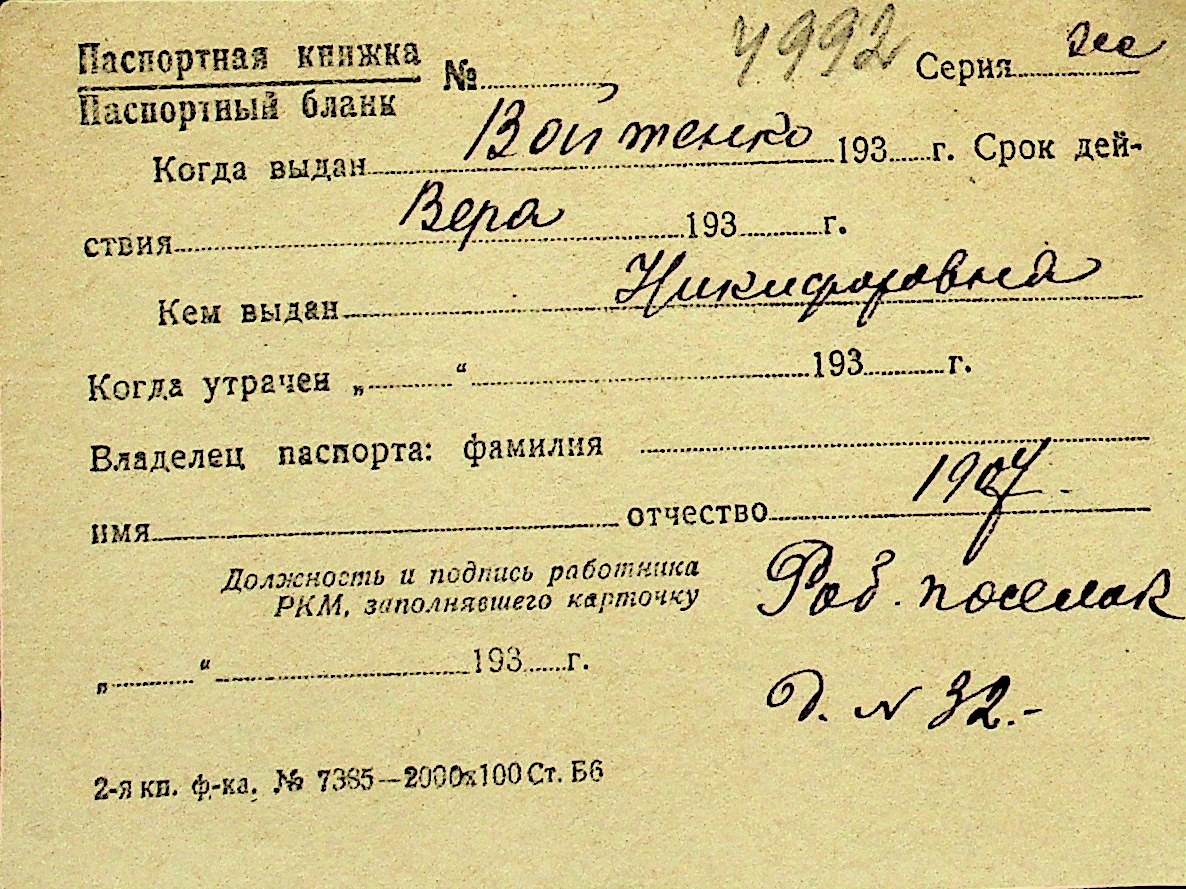 Паспортная книжка № 4992 Серия
Паспортный бланк
Когда выдан Войтенко 193 г. Срок дей-
ствия Вера 193 г.
Кем выдан Никифоровна
Когда утрачен „ “ 193 г.
Владелец паспорта: фамилия
имя отчество 1907
Должность и подпись работника
РКМ, заполнявшего карточку
Раб. поселок
„ “ 193 г.
Д. N 32.-
2-я кп. ф-ка. № 7385—2000х100 Ст. Б6